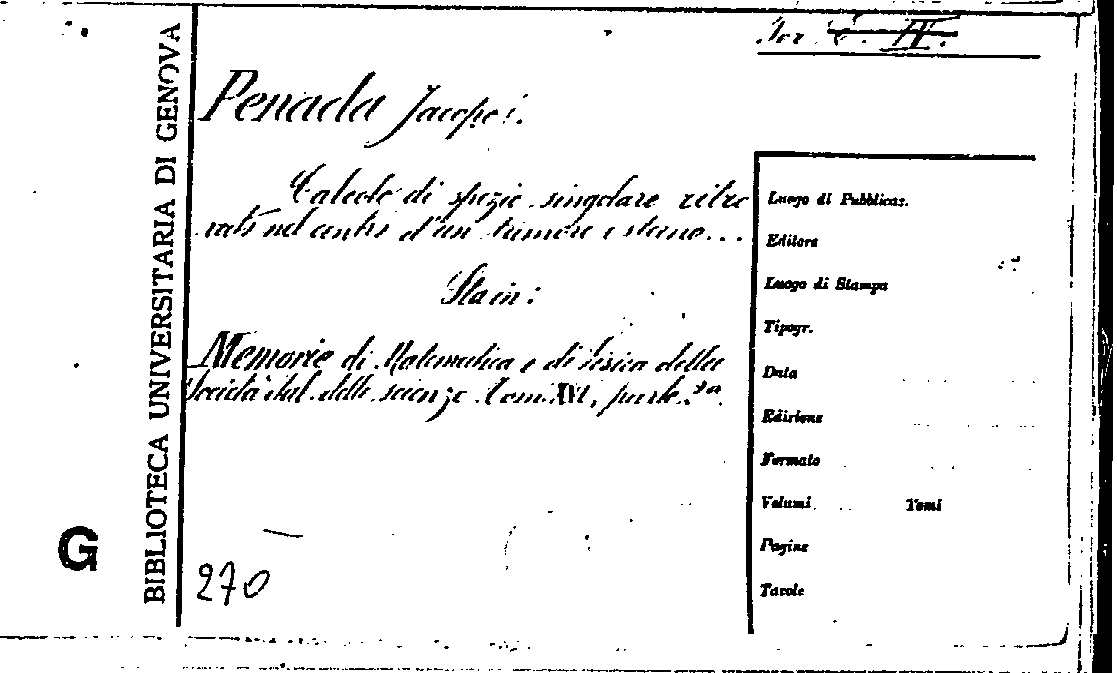 BIBLIOTECA UNIVERSITARIA DI GENOVA
G
Penada Jacopo.
Calcolo di spezie singolare ritro
vato nel centro d'un tumore
Sta in:
Memorie di Matematica e di fisica della
Società ital. delle scienze Tom. XVI, parte 2a.
270
Luogo di Pubblicaz.
Editore
Luogo di Stampa
Tipogr.
Data
Edizione
Formato
Volumi Tomi
Pagine
Tavole